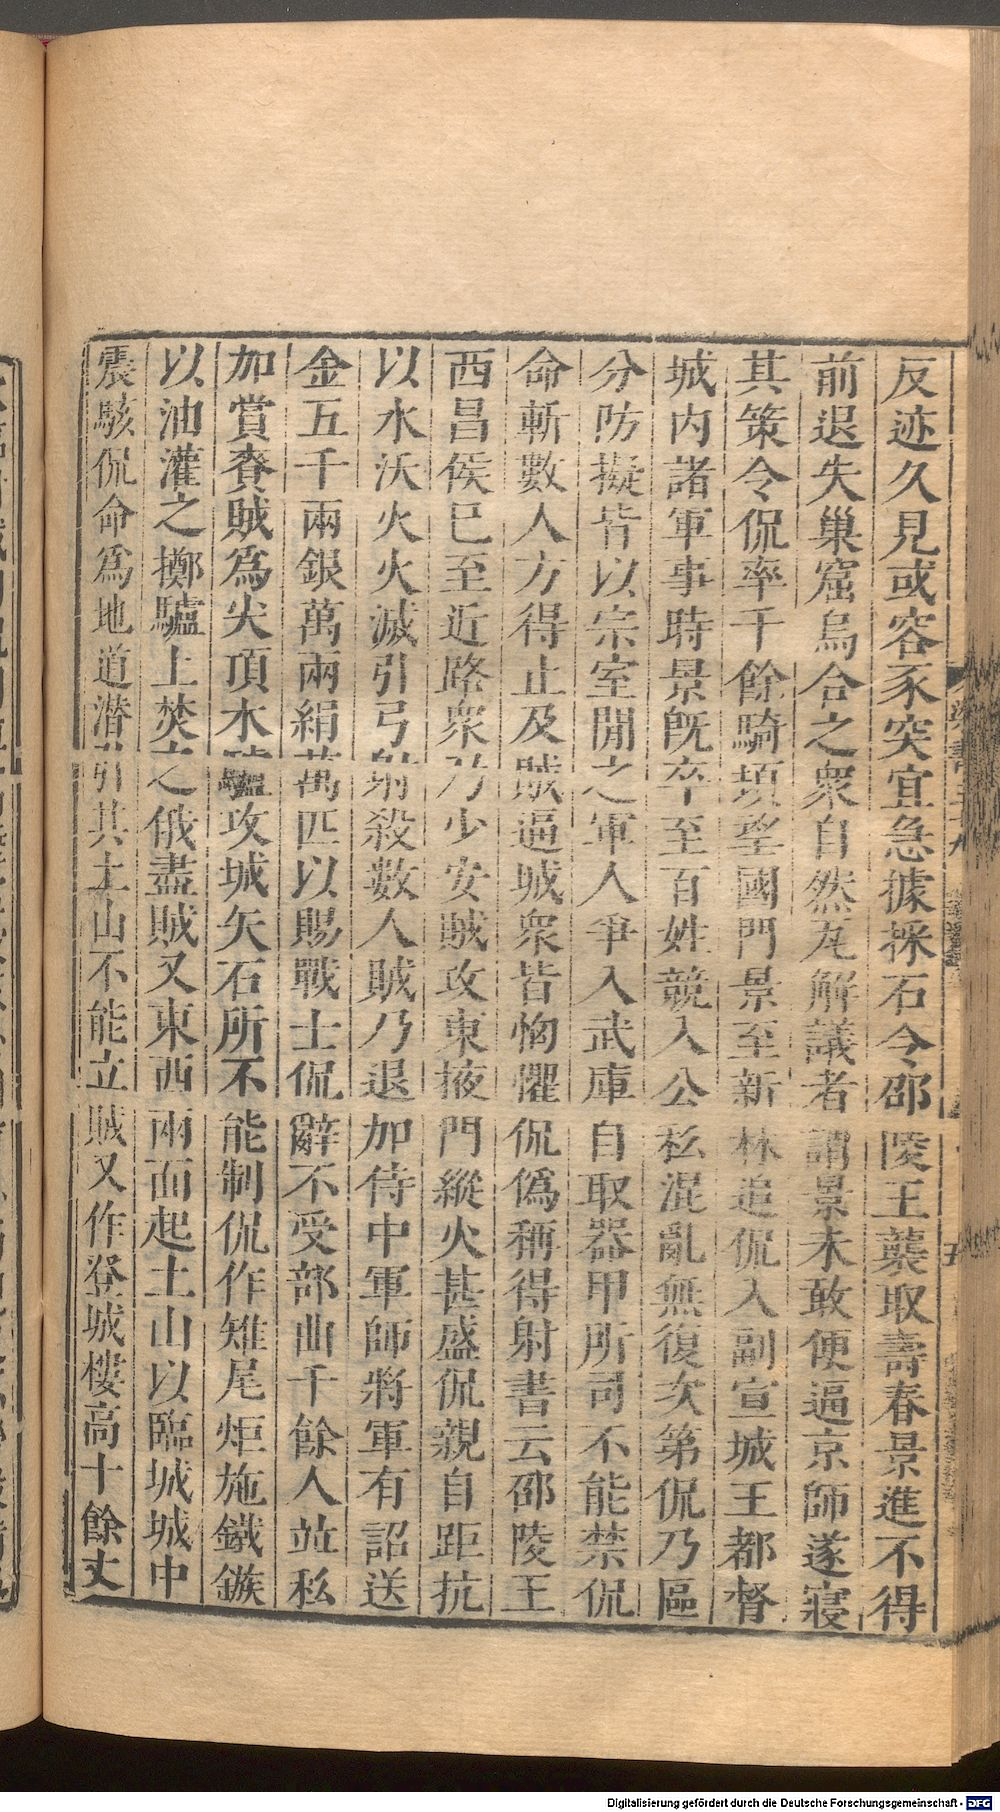 反迹久見或容豕突宜急據採石令邵陵王襲取壽春景進不得
前退失巢窟烏合之衆自然瓦解議者謂景未敢便逼京師遂寢
其策令侃率千餘騎頓望國門景至新林追侃入副宣城王都督
城内諸軍事時景旣卒至百姓競入公私混亂無復次第侃乃區
分防擬皆以宗室閒之軍人爭入武庫自取器甲所司不能禁侃
命斬數人方得止及賊逼城衆皆恟懼侃僞稱得射書云邵陵王
西昌侯已至近路衆乃少安賊攻東掖門縱火甚盛侃親自距抗
以水沃火火滅引弓射殺數人賊乃退加侍中軍師將軍有詔送
金五千兩銀萬兩絹萬匹以賜戰士侃辭不受部曲千餘人並私
加賞賚賊爲尖頂木驢攻城矢石所不能制侃作雉尾炬施鐵鏃
以油灌之擲驢上焚之俄盡賊又東西兩面起土山以臨城城中
震駭侃命爲地道潛引其土山不能立賊又作登城樓高十餘丈
五
Digitalisierung gefördert durch die Deutsche Forschungsgemeinschaft - DFG